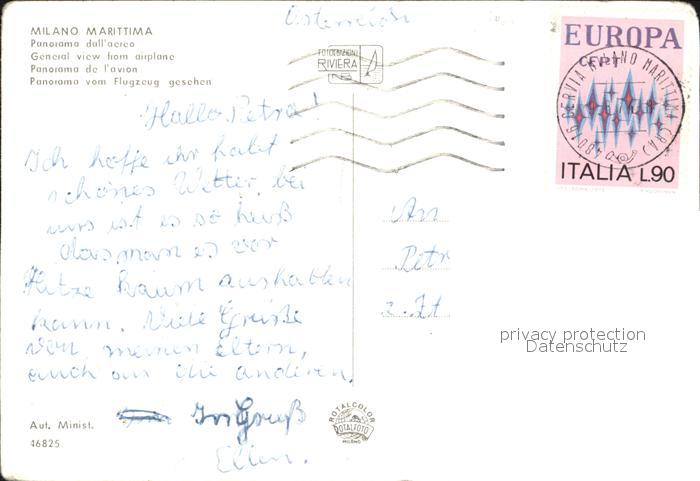 Österreich
MILANO MARITTIMA
Panorama dall'aereo
General view from airplane
Panorama de l'avion
Panorama vom Flugzeug gesehen
FOTOEDIZIONI
RIVIERA
EUROPA
CEPT
48016 CERVIA MILANO MARITTIMA (RA)
ITALIA L.90
Hallo Petra!
Ich hoffe ihr habt
schönes Wetter, bei
uns ist es so heiß
dass man es vor
Hitze kaum aushalten
kann. Viele Grüße
von meinen Eltern,
auch an die anderen.
Gruß
Ellen.
An
Petr
z. Zt
privacy protection
Datenschutz
Aut. Minist.
46825
ROTALCOLOR
ROTALFOTO
MILANO